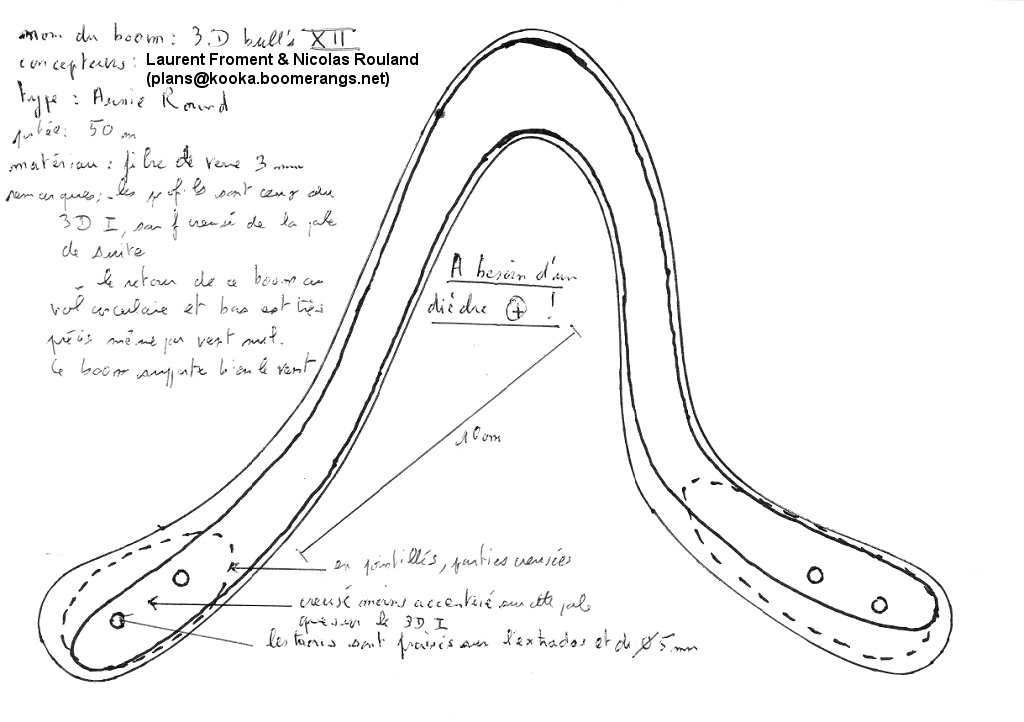 nom du boom : 3D bull's XII
concepteurs : Laurent Froment & Nicolas Rouland
(plans@kooka.boomerangs.net)
type : Aussie Round
portée : 50 m
matériau : fibre de verre 3 mm
remarques : - les profils sont ceux du
3D I, sauf creusé de la pale
de suite
- le retour de ce boom au
vol circulaire et bas est très
précis même par vent nul.
Ce boom supporte bien le vent
A besoin d'un
dièdre ⊕ !
10 cm
en pointillés, parties creusées
creusé moins accentué sur cette pale
que sur le 3D I
les trous sont fraisés sur l'extrados et de Ø 5 mm